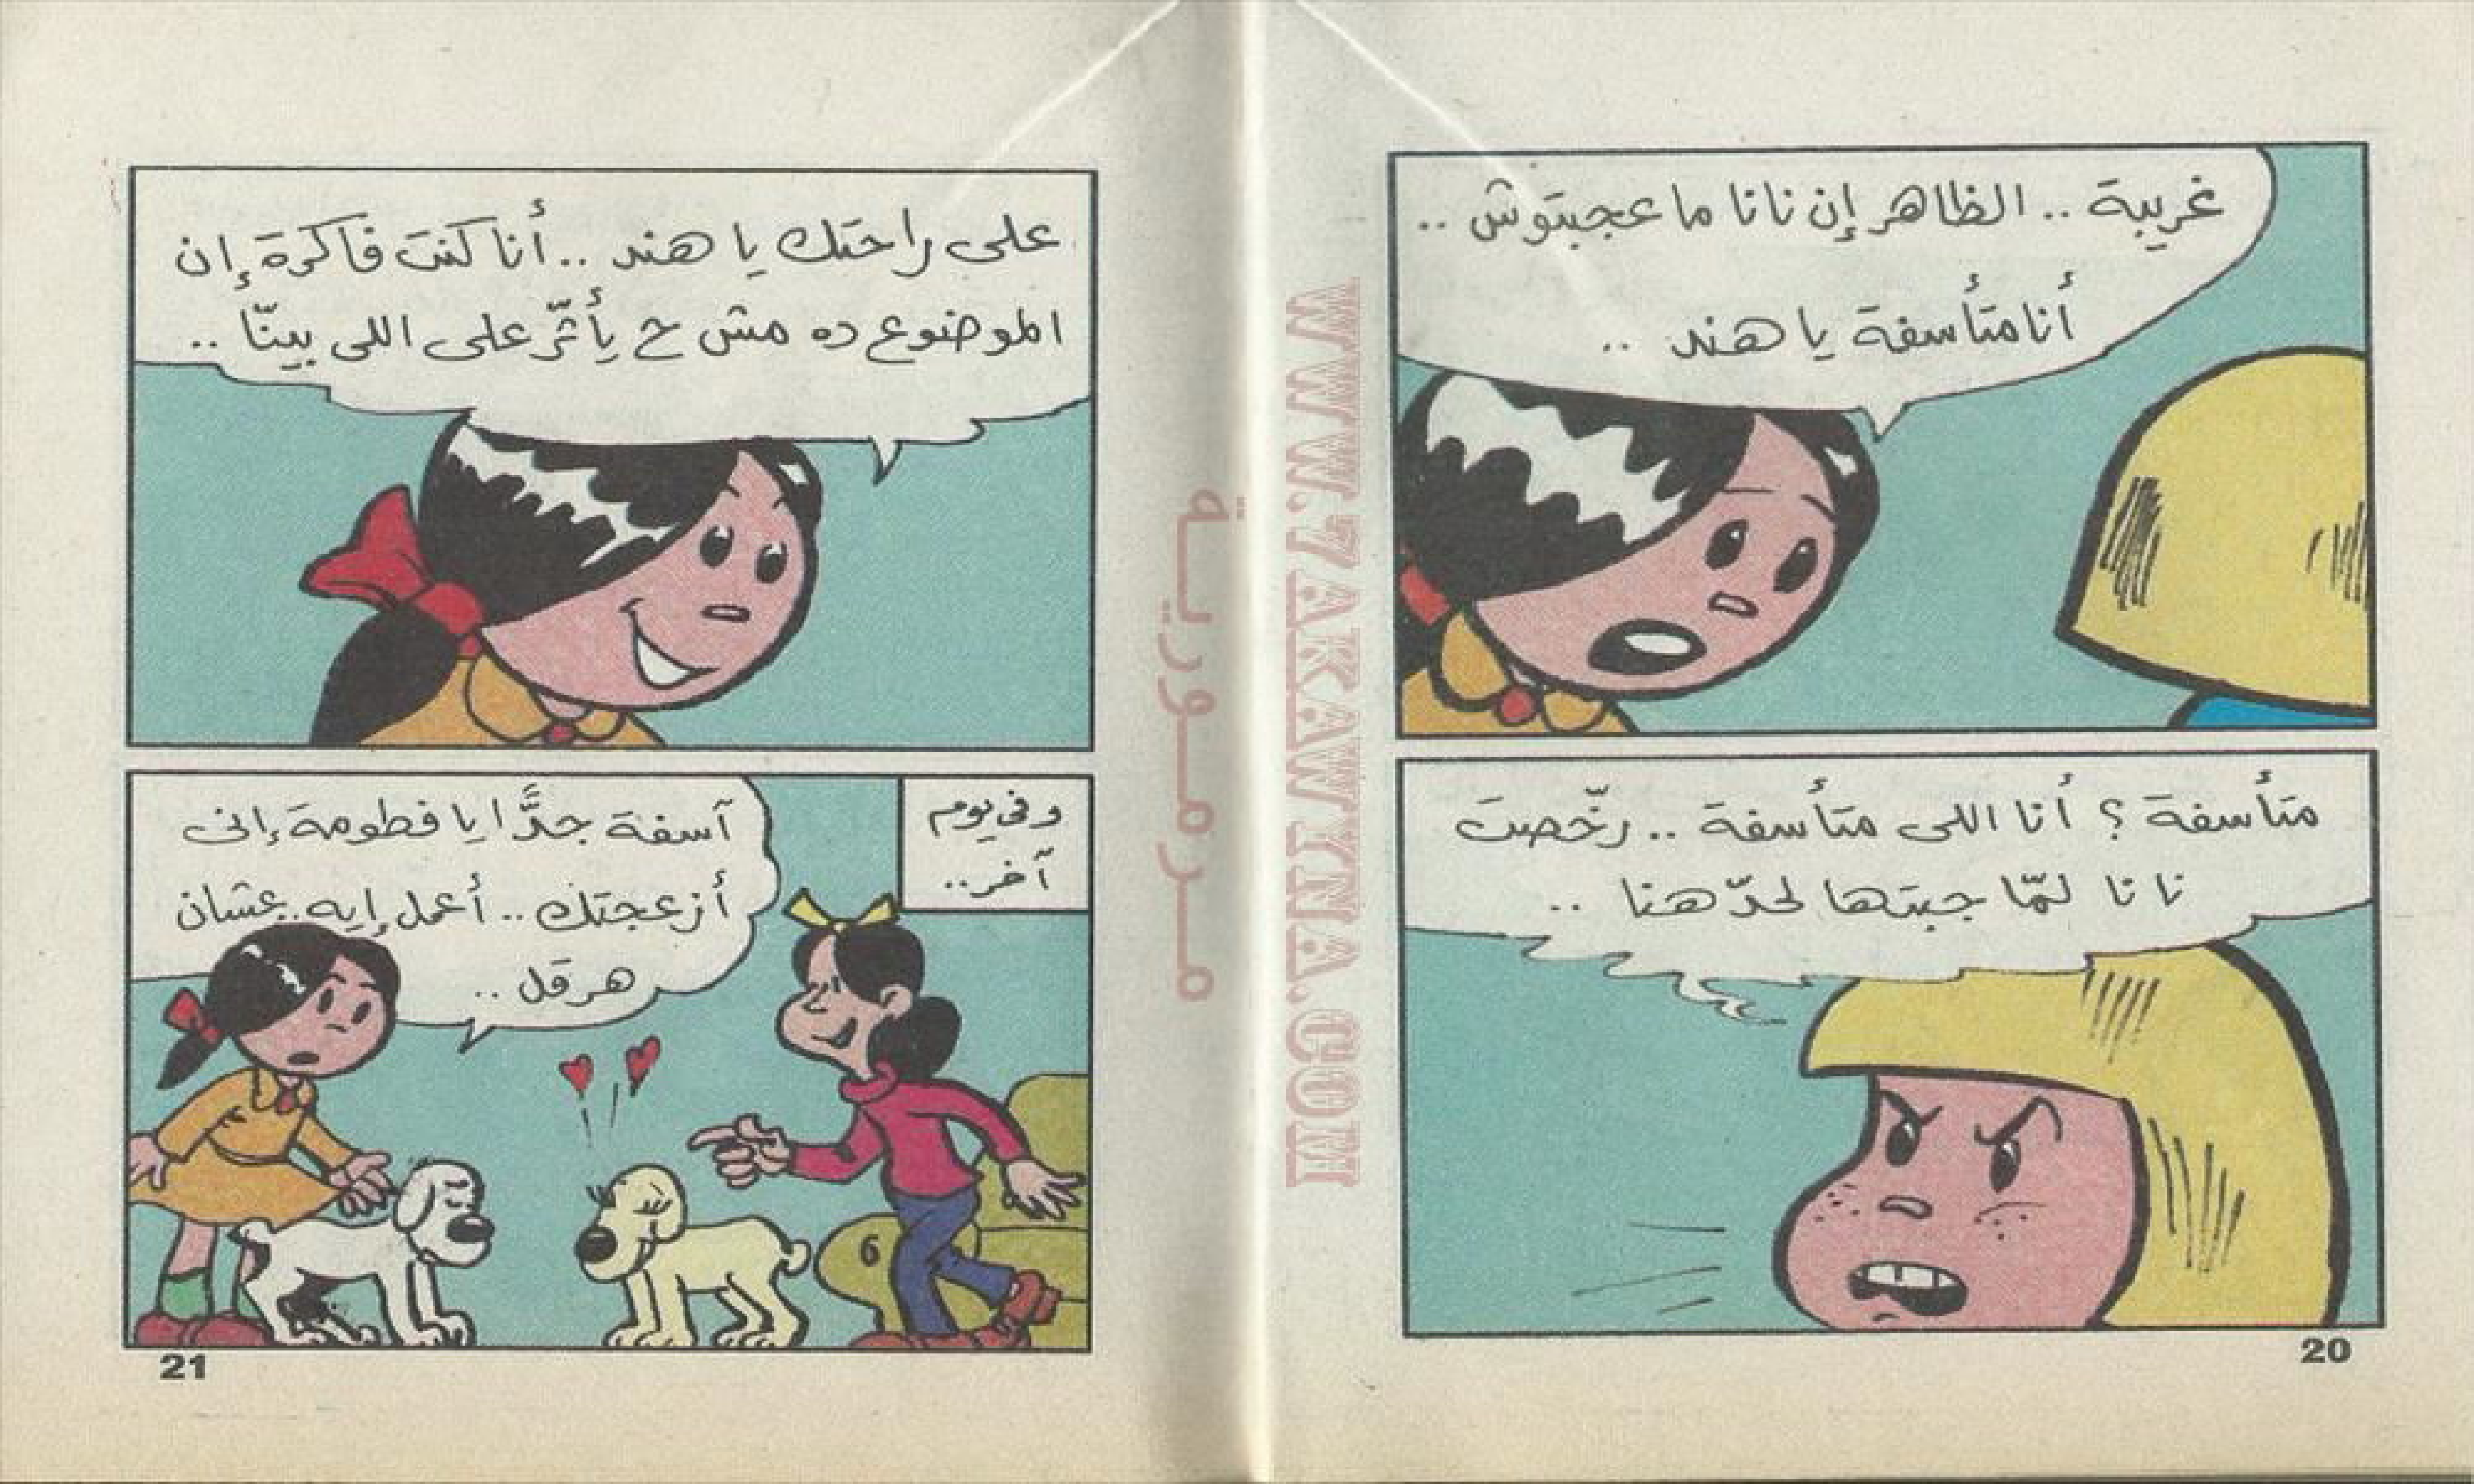 غريبة .. الظاهر إن نانا ما عجبتوش ..
أنا متأسفة يا هند ..
متأسفة ؟ أنا اللى متأسفة .. رخّصت
نانا لمّا جبتها لحدّ هنا ..
20
على راحتك يا هند .. أنا كنت فاكرة إن
الموضوع ده مش ح يأثّر على اللى بينّا ..
وفى يوم
آخر..
آسفة جدًّا يا فطومة إنى
أزعجتك .. أعمل إيه .. عشان
هرقل ..
6
21
مرمورية
WWW.7AKAWINA.COM